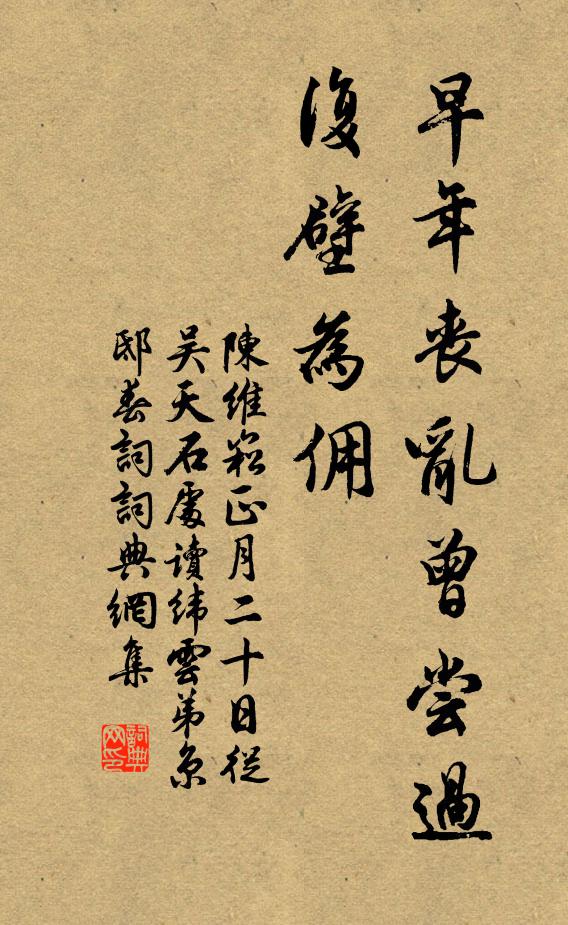 早年喪亂曾嘗過
復壁為傭
陳維崧正月二十日從
吳天石處讀緯雲弟京
邸春詞詞典網集
詞典
网印